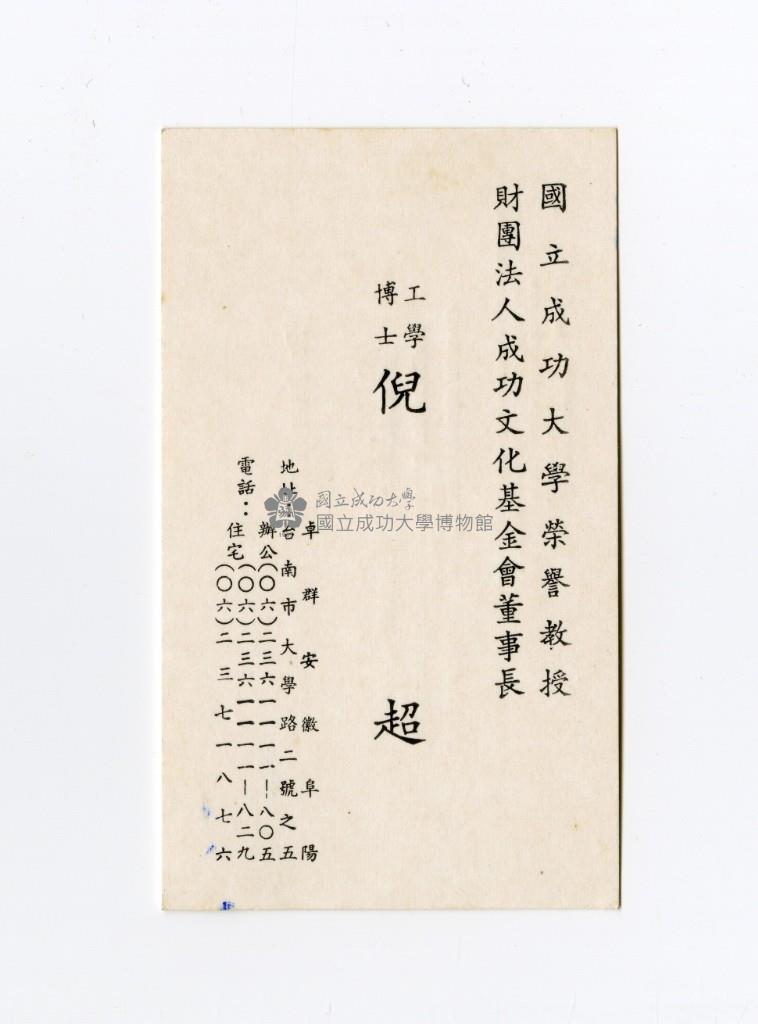 國立成功大學榮譽教授
財團法人成功文化基金會董事長
工學
博士
倪超
卓群 安徽阜陽
地址：台南市大學路二號之五
電話：辦公（〇六）二三六一一一一－八〇五
（〇六）二三六一一一一－八二九
住宅（〇六）二三七一八七六
國立成功大學
國立成功大學博物館